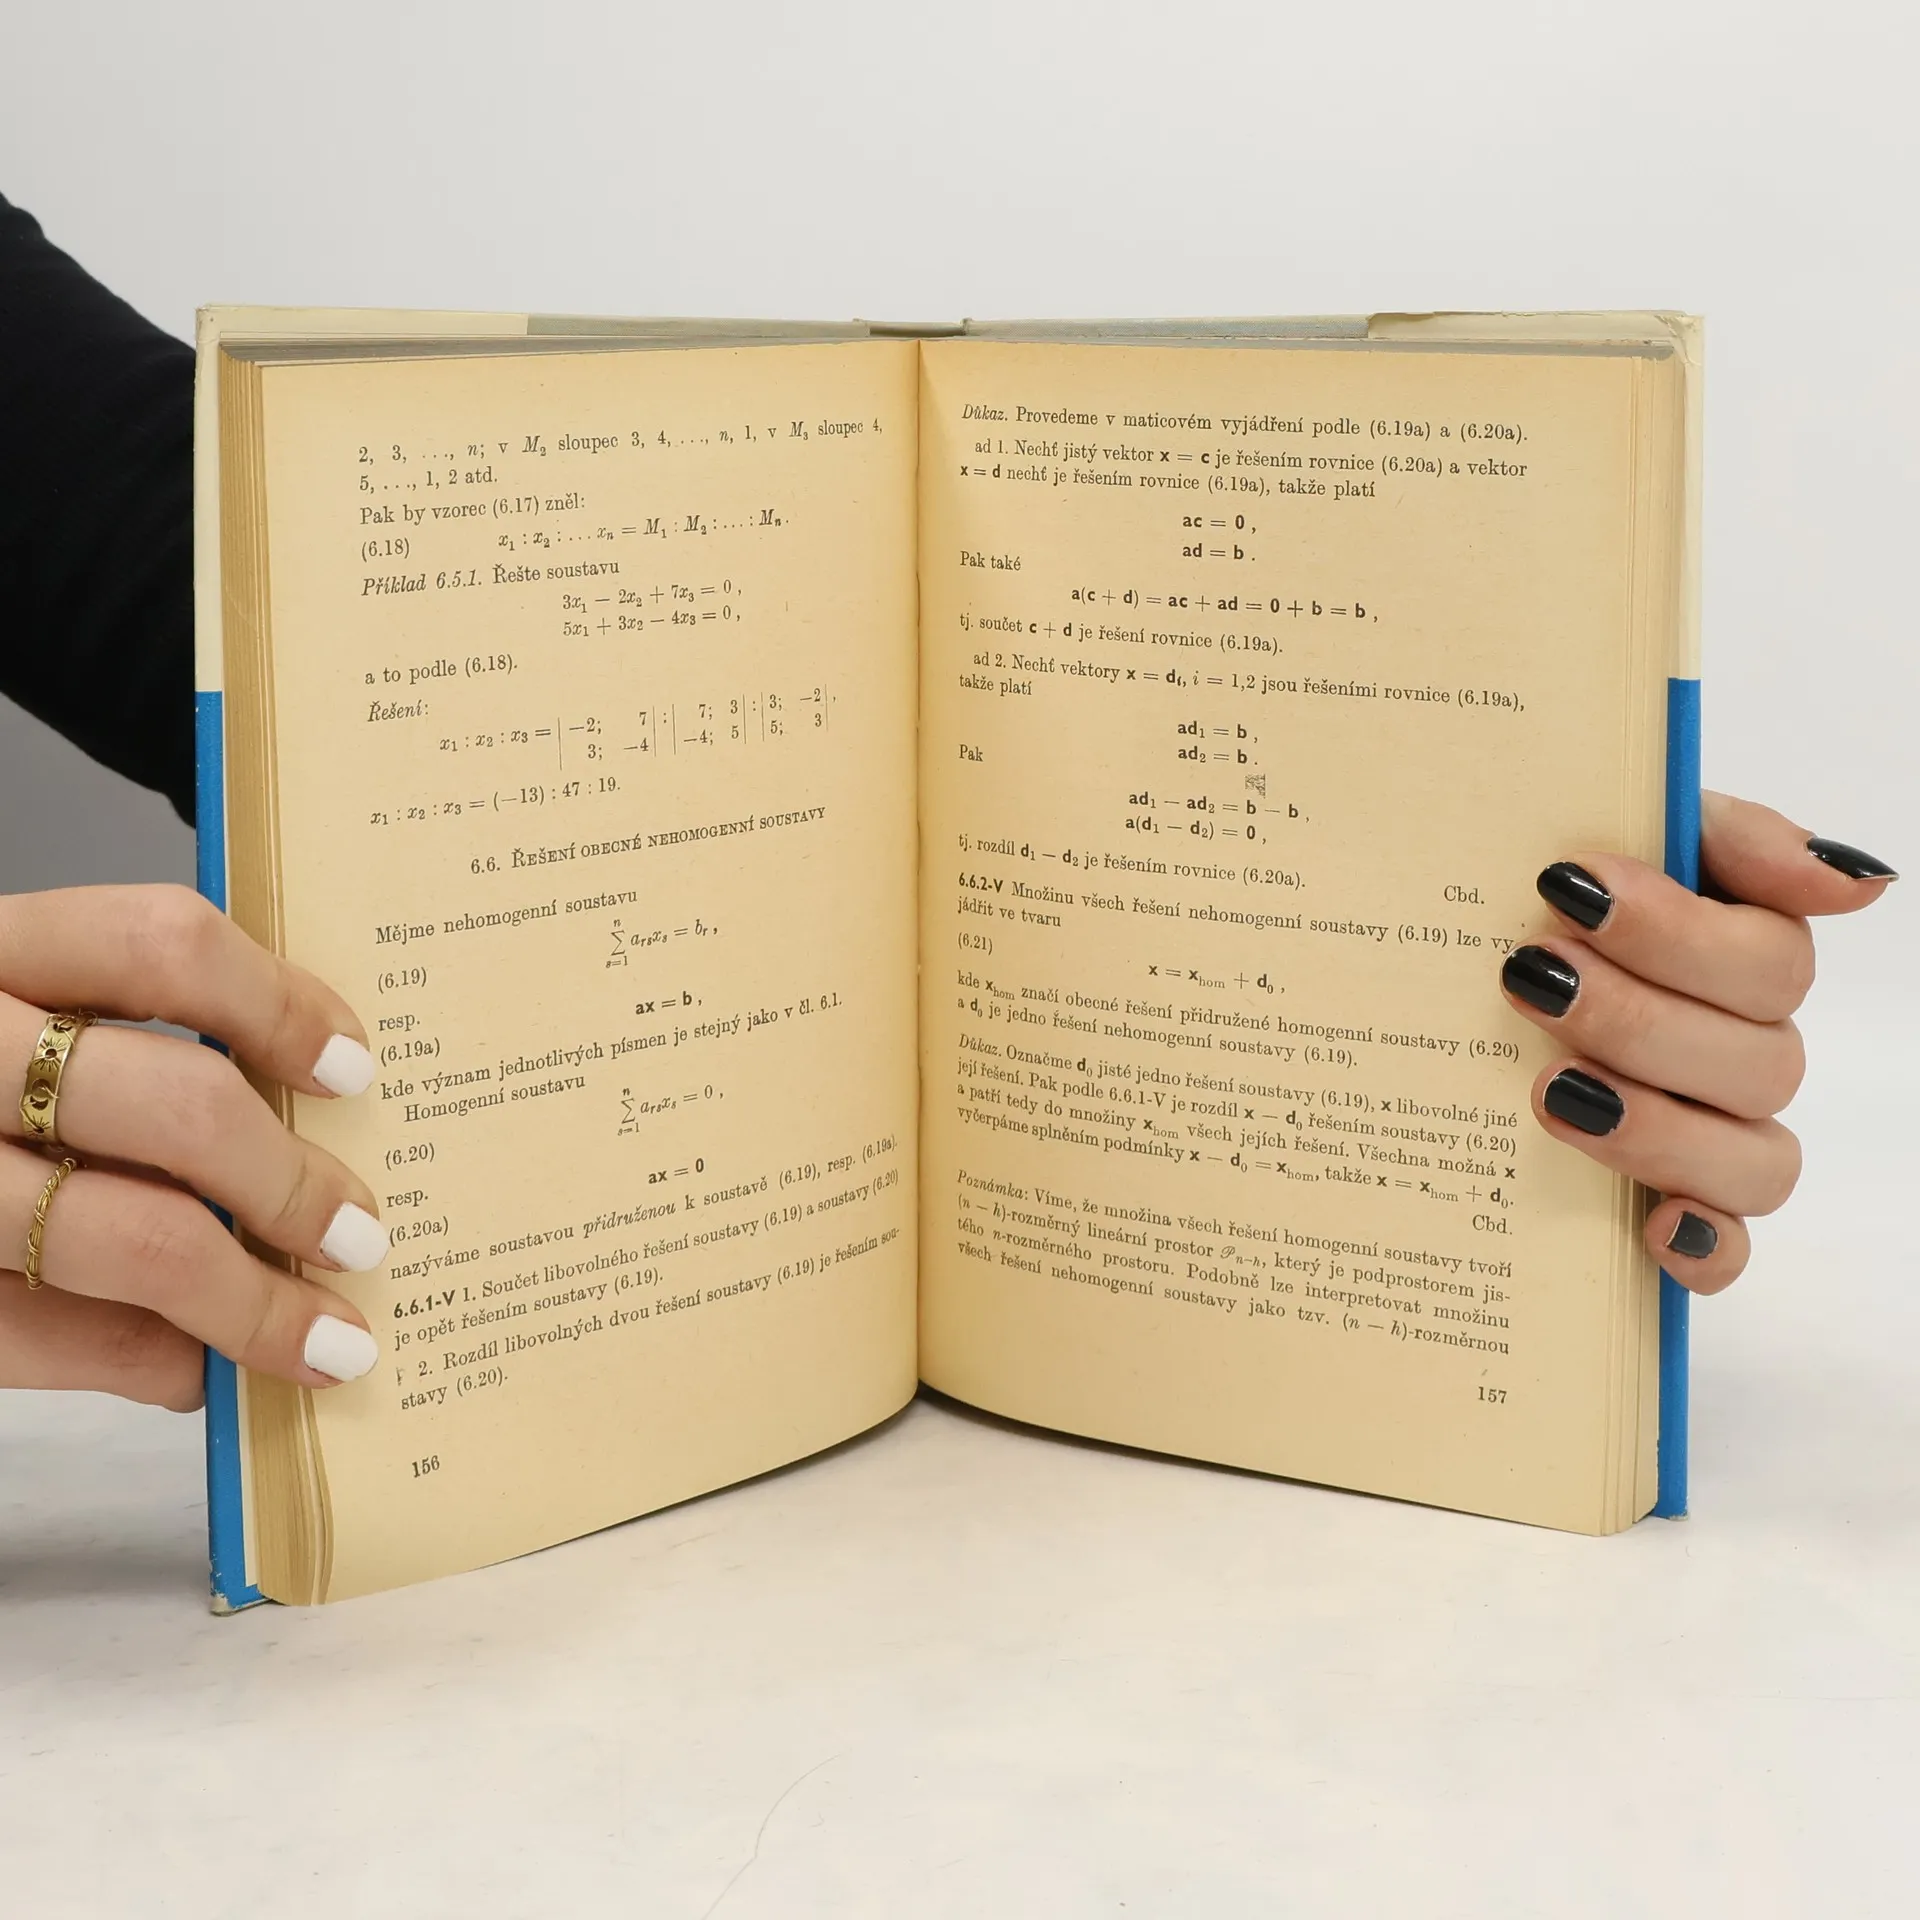 2, 3, ..., n; v M₂ sloupec 3, 4, ..., n, 1, v M₃ sloupec 4,
5, ..., 1, 2 atd.
Pak by vzorec (6.17) zněl:
(6.18) x₁ : x₂ : ... xₙ = M₁ : M₂ : ... : Mₙ.
Příklad 6.5.1. Řešte soustavu
3x₁ — 2x₂ + 7x₃ = 0 ,
5x₁ + 3x₂ — 4x₃ = 0 ,
a to podle (6.18).
Řešení:
x₁ : x₂ : x₃ = | —2; 7 | : | 7; 3 | : | 3; —2 | ,
| 3; —4 | | —4; 5 | | 5; 3 |
x₁ : x₂ : x₃ = (—13) : 47 : 19.
6.6. ŘEŠENÍ OBECNÉ NEHOMOGENNÍ SOUSTAVY
Mějme nehomogenní soustavu
(6.19) n ∑ s=1 aᵣₛxₛ = bᵣ ,
resp.
(6.19a) ax = b ,
kde význam jednotlivých písmen je stejný jako v čl. 6.1.
Homogenní soustavu
(6.20) n ∑ s=1 aᵣₛxₛ = 0 ,
resp.
(6.20a) ax = 0
nazýváme soustavou přidruženou k soustavě (6.19), resp. (6.19a).
6.6.1-V 1. Součet libovolného řešení soustavy (6.19) a soustavy (6.20)
je opět řešením soustavy (6.19).
2. Rozdíl libovolných dvou řešení soustavy (6.19) je řešením sou-
stavy (6.20).
156
Důkaz. Provedeme v maticovém vyjádření podle (6.19a) a (6.20a).
ad 1. Nechť jistý vektor x = c je řešením rovnice (6.20a) a vektor
x = d nechť je řešením rovnice (6.19a), takže platí
ac = 0 ,
ad = b .
Pak také
a(c + d) = ac + ad = 0 + b = b ,
tj. součet c + d je řešení rovnice (6.19a).
ad 2. Nechť vektory x = dᵢ, i = 1,2 jsou řešeními rovnice (6.19a),
takže platí
ad₁ = b ,
ad₂ = b .
Pak
ad₁ — ad₂ = b — b ,
a(d₁ — d₂) = 0 ,
tj. rozdíl d₁ — d₂ je řešením rovnice (6.20a).
Cbd.
6.6.2-V Množinu všech řešení nehomogenní soustavy (6.19) lze vy
jádřit ve tvaru
(6.21)
x = x_hom + d₀ ,
kde x_hom značí obecné řešení přidružené homogenní soustavy (6.20)
a d₀ je jedno řešení nehomogenní soustavy (6.19).
Důkaz. Označme d₀ jisté jedno řešení soustavy (6.19), x libovolné jiné
její řešení. Pak podle 6.6.1-V je rozdíl x — d₀ řešením soustavy (6.20)
a patří tedy do množiny x_hom všech jejích řešení. Všechna možná x
vyčerpáme splněním podmínky x — d₀ = x_hom, takže x = x_hom + d₀.
Cbd.
Poznámka: Víme, že množina všech řešení homogenní soustavy tvoří
(n — h)-rozměrný lineární prostor 𝒫ₙ₋ₕ, který je podprostorem jis-
tého n-rozměrného prostoru. Podobně lze interpretovat množinu
všech řešení nehomogenní soustavy jako tzv. (n — h)-rozměrnou
157